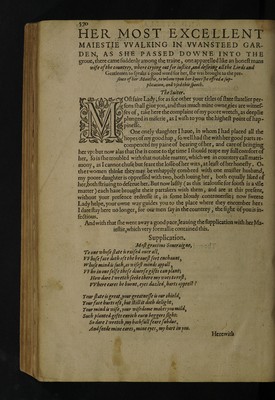 570
HER MOST EXCELLENT
MAIESTIE VVALKING IN VVANSTEED GAR-
DEN, AS SHE PASSED DOVNE INTO THE
groue, there came suddenly among the traine, one apparelled like an honest mans
wife of the countrey, where crying out for iustice, and desiring all the Lords and
Gentlemen to speake a good word for her, she was brought to the pre-
sence of her Maiestie, to whom vpon her knees she offred a sup-
plication, and vsed this speech.
The Suiter.
MOst faire Lady; for as for other your titles of state statelier per-
sons shall giue you, and thus much mine owne eies are witnes-
ses of, take here the complaint of my poore wretch, as deeply
plunged in miserie, as I wish to you the highest point of hap-
pinesse.
One onely daughter I haue, in whom I had placed all the
hopes of my good hap, so well had she with her good parts re-
compenced my paine of bearing of her, and care of bringing
her vp: but now alas that she is come to the time I should reape my full comfort of
her, so is she troubled with that notable matter, which we in countrey call matri-
mony, as I cannot chuse but feare the losse of her wits, at least of her honesty. O-
ther women thinke they may be vnhappily combred with one master husband,
my poore daughter is oppressed with two, both louing her, both equally liked of
her, both striuing to deserue her. But now lastly (as this iealousie forsooth is a vile
matter) each haue brought their partakers with them, and are at this present,
without your presence redresse it, in some bloudy controuersie; now sweete
Lady helpe, your owne way guides you to the place where they encomber her.
I dare stay here no longer, for our men say in the countrey, the sight of you is in-
fectious.
And with that she went away a good pace, leauing the supplication with her Ma-
iestie, which very formallie contained this.
Supplication.
Most gracious Soueraigne,
To one whose state is raised ouer all,
VVhose face doth oft the brauest sort enchaunt,
Whose mind is such, as wisest minds appall,
VVho in one selfe these diuerse gifts can plant;
How dare I wretch seeke there my woes to rest,
VVhere eares be burnt, eyes dazled, harts opprest?
Your state is great, your greatnesse is our shield,
Your face hurts oft, but still it doth delight,
Your mind is wise, your wisedome makes you mild,
Such planted gifts enrich euen beggers sight:
So dare I wretch, my bashfull feare subdue,
And feede mine eares, mine eyes, my hart in you.
Herewith